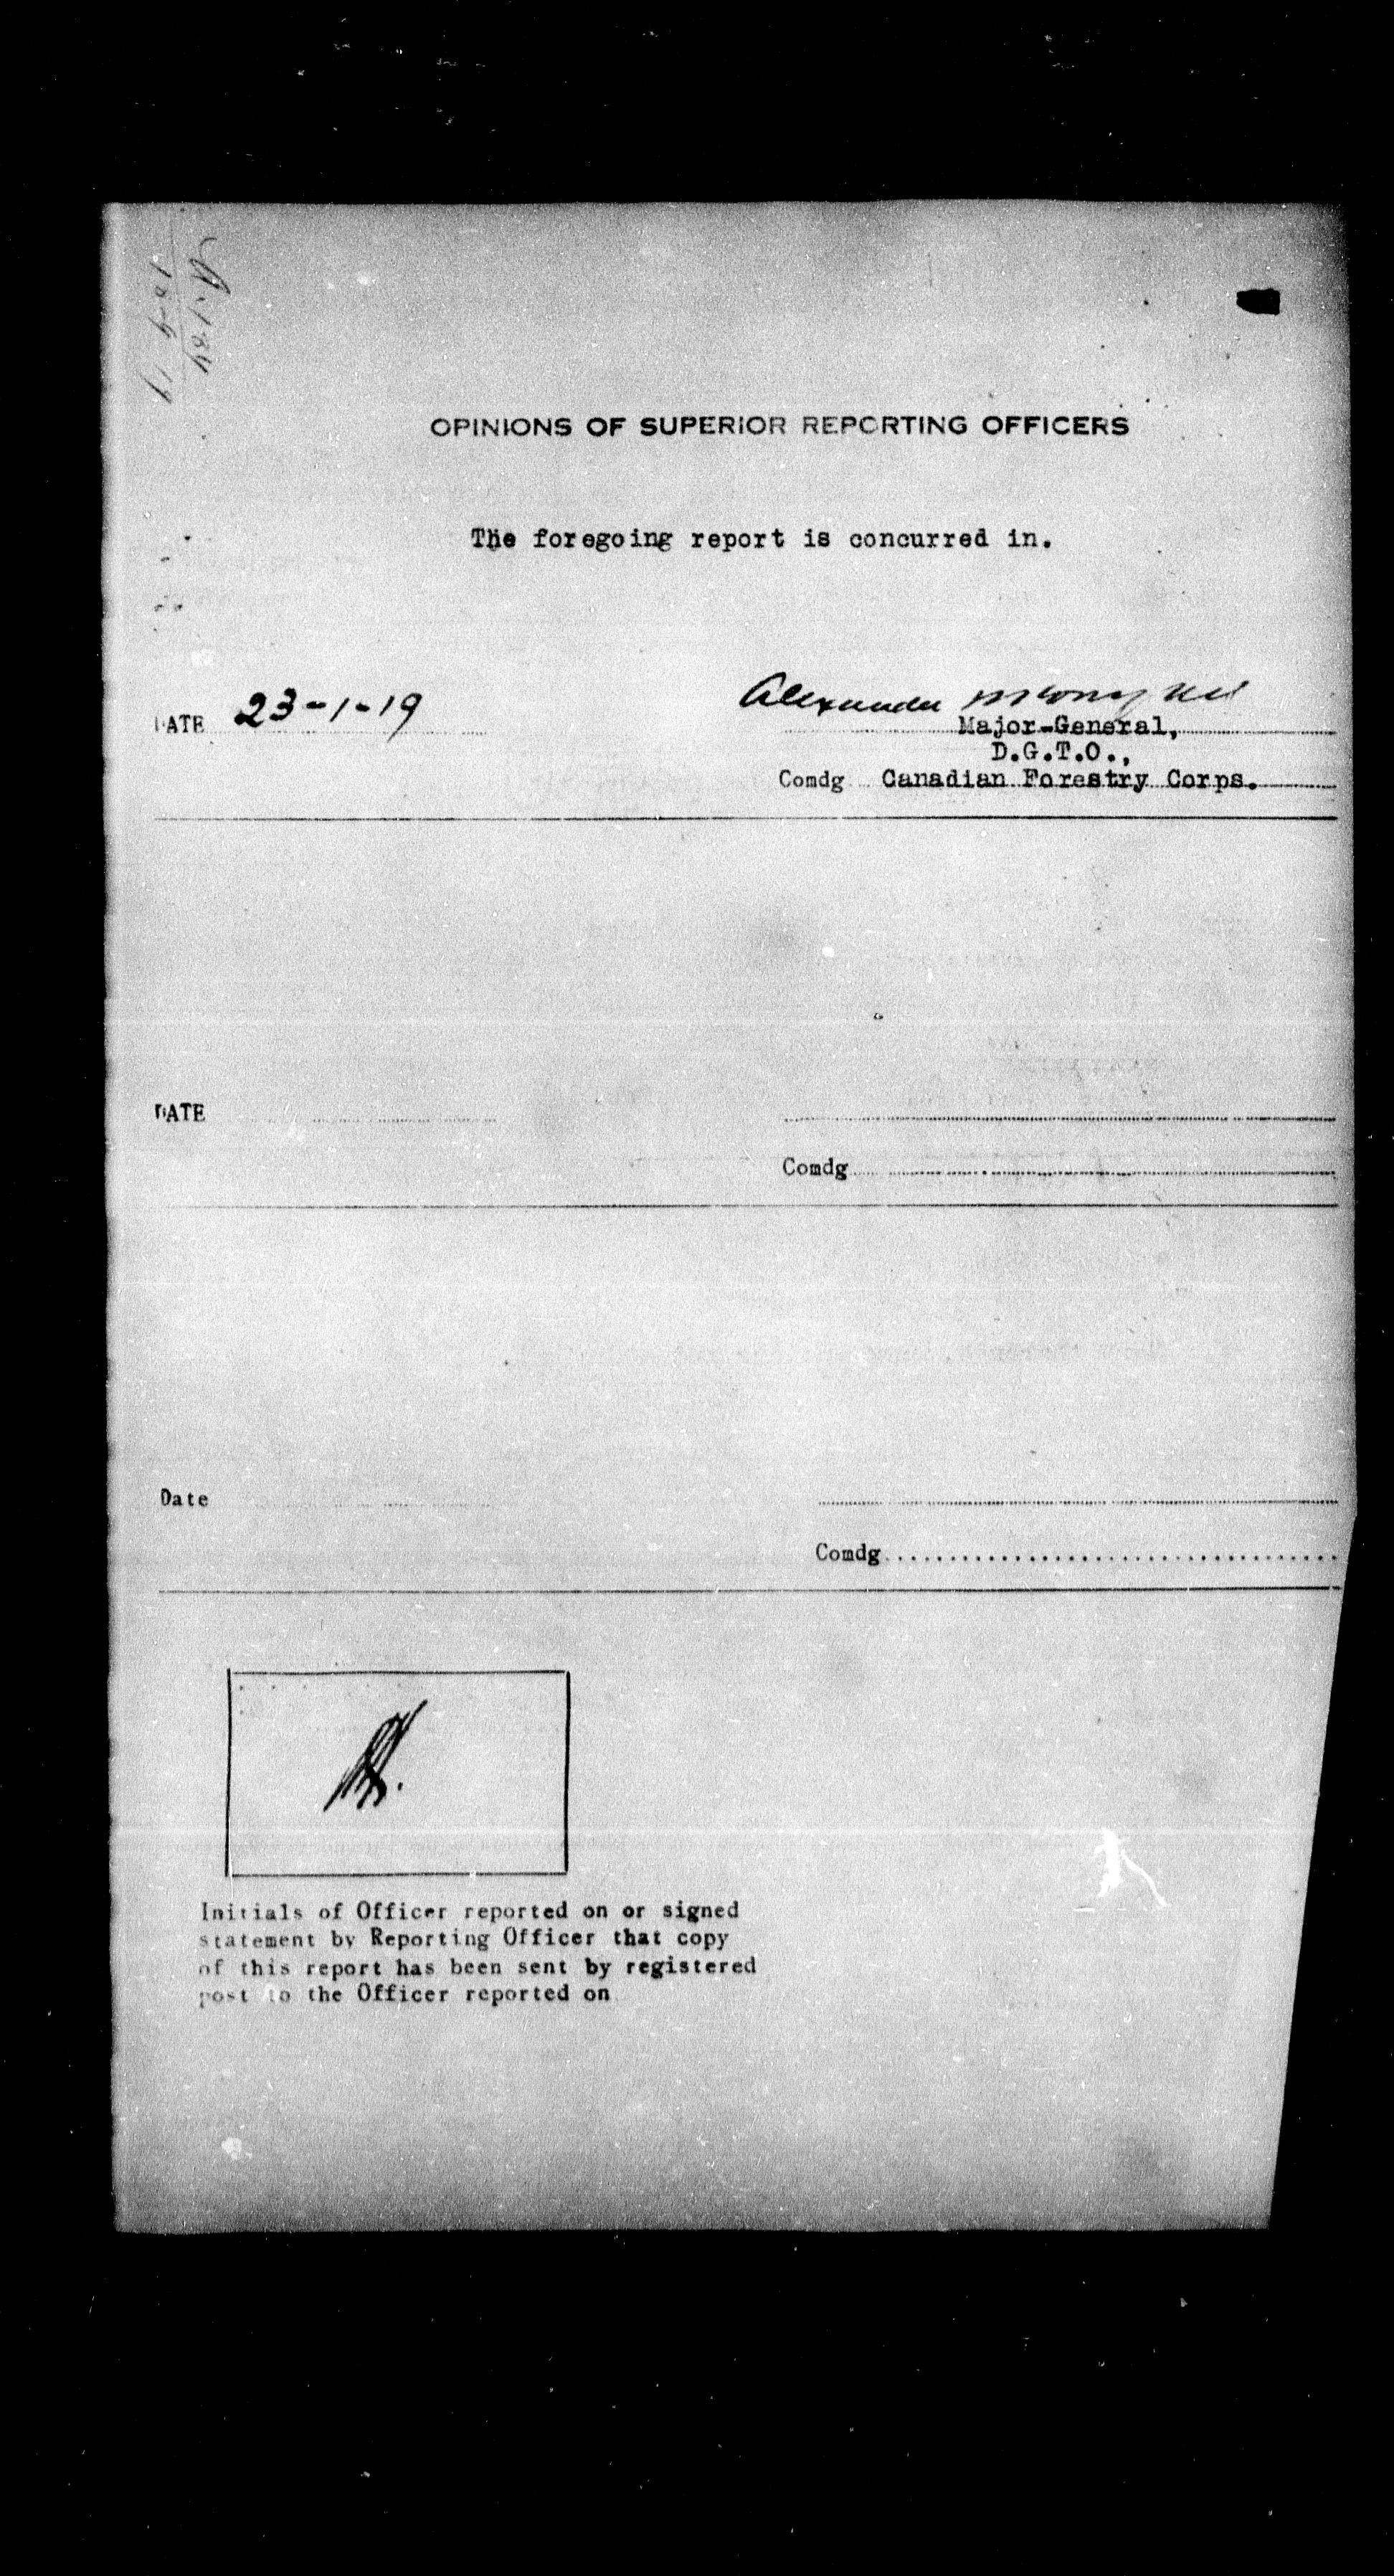 OPINIONS OF SUPERIOR REPORTING OFFICERS
The foregoing report is concurred in.
DATE 23-1-19
Alexander
Major-General,
D.G.T.O.,
Comdg Canadian Forestry Corps.
DATE
Comdg
Date
Comdg
Initials of Officer reported on or signed
statement by Reporting Officer that copy
of this report has been sent by registered
post to the Officer reported on